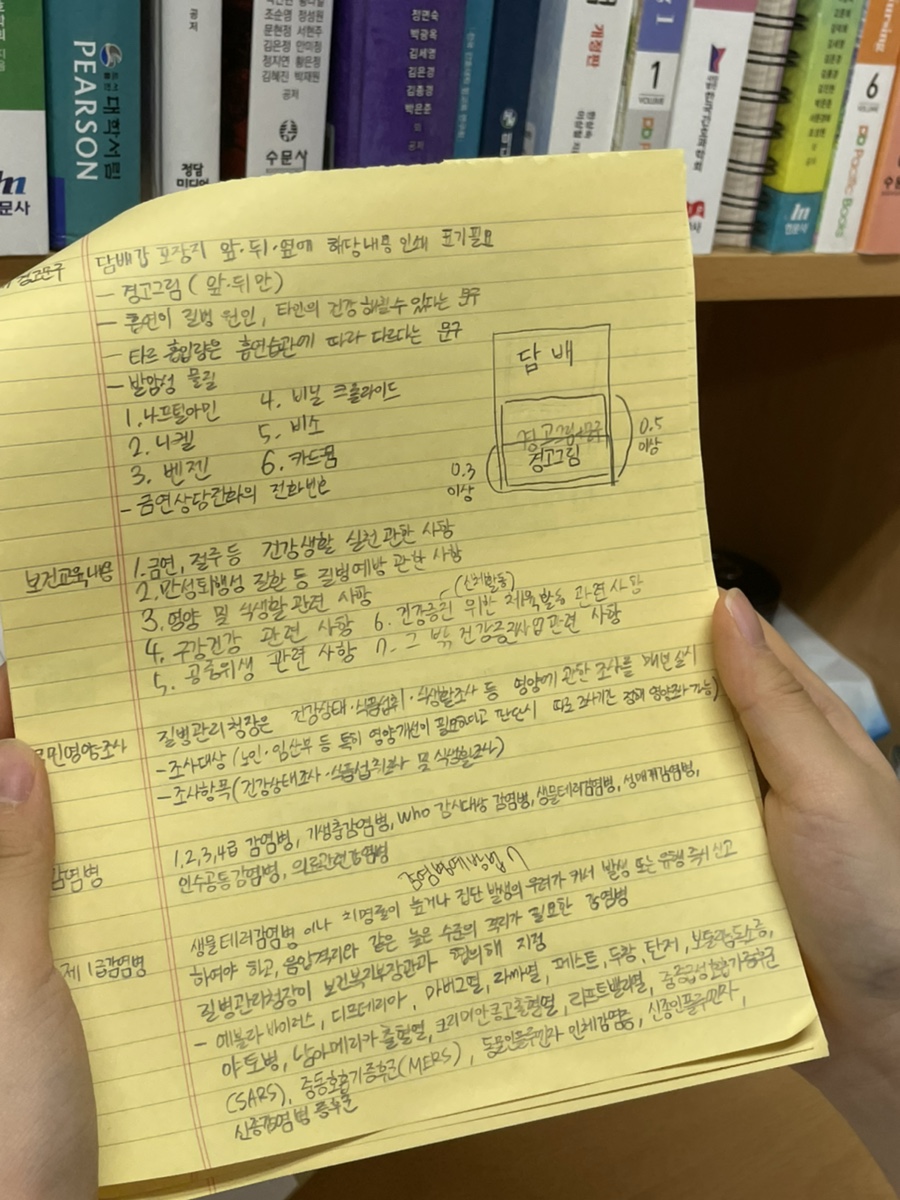 PEARSON
대학서림
공저
정담
미디어
조순영 정성원
문현정 서현주
김은정 안미정
정지연 황은정
김혜진 백재원
공저
수문사
정면숙
박광옥
김세영
김은경
김종경
박은준
외
공저
개정판
1
VOLUME
현문사
6
VOLUME
Pacific Books
경고문구
담배갑 포장지 앞·뒤·옆에 해당내용 인쇄 표기필요
- 경고그림 (앞·뒤만)
- 흡연이 질병 원인, 타인의 건강 해칠 수 있다는 문구
- 타르 흡입량은 흡연습관에 따라 다르다는 문구
- 발암성 물질
1. 나프틸아민 4. 비닐 크롤라이드
2. 니켈 5. 비소
3. 벤젠 6. 카드뮴
- 금연상담전화의 전화번호
담배
경고그림+문구
경고그림
0.3
이상
0.5
이상
보건교육내용
1. 금연, 절주 등 건강생활 실천 관한 사항
2. 만성퇴행성 질환 등 질병예방 관한 사항
3. 영양 및 식생활 관련 사항
(신체활동)
4. 구강건강 관련 사항 6. 건강증진 위한 체육활동 관련 사항
5. 공중위생 관련 사항 7. 그 밖 건강증진사업 관련 사항
국민영양조사
질병관리청장은 건강상태·식품섭취·식생활조사 등 영양에 관한 조사를 매년 실시
- 조사대상 (노인·임산부 등 특히 영양개선이 필요하다고 판단시 따로 조사기간 정해 영양조사 가능)
- 조사항목 (건강상태조사·식품섭취조사 및 식생활조사)
감염병
1,2,3,4급 감염병, 기생충감염병, who 감시대상 감염병, 생물테러감염병, 성매개감염병,
인수공통감염병, 의료관련감염병
감염병예방법
제1급감염병
생물테러감염병 이나 치명률이 높거나 집단 발생의 우려가 커서 발생 또는 유행 즉시 신고
하여야 하고, 음압격리와 같은 높은 수준의 격리가 필요한 감염병
질병관리청장이 보건복지부장관과 협의해 지정
- 에볼라 바이러스, 디프테리아, 마버그열, 라싸열, 페스트, 두창, 탄저, 보툴리눔독소증,
야토병, 남아메리카 출혈열, 크리미안콩고출혈열, 리프트밸리열, 중증급성호흡기증후군
(SARS), 중동호흡기증후군(MERS), 동물인플루엔자 인체감염증, 신종인플루엔자,
신종감염병 증후군